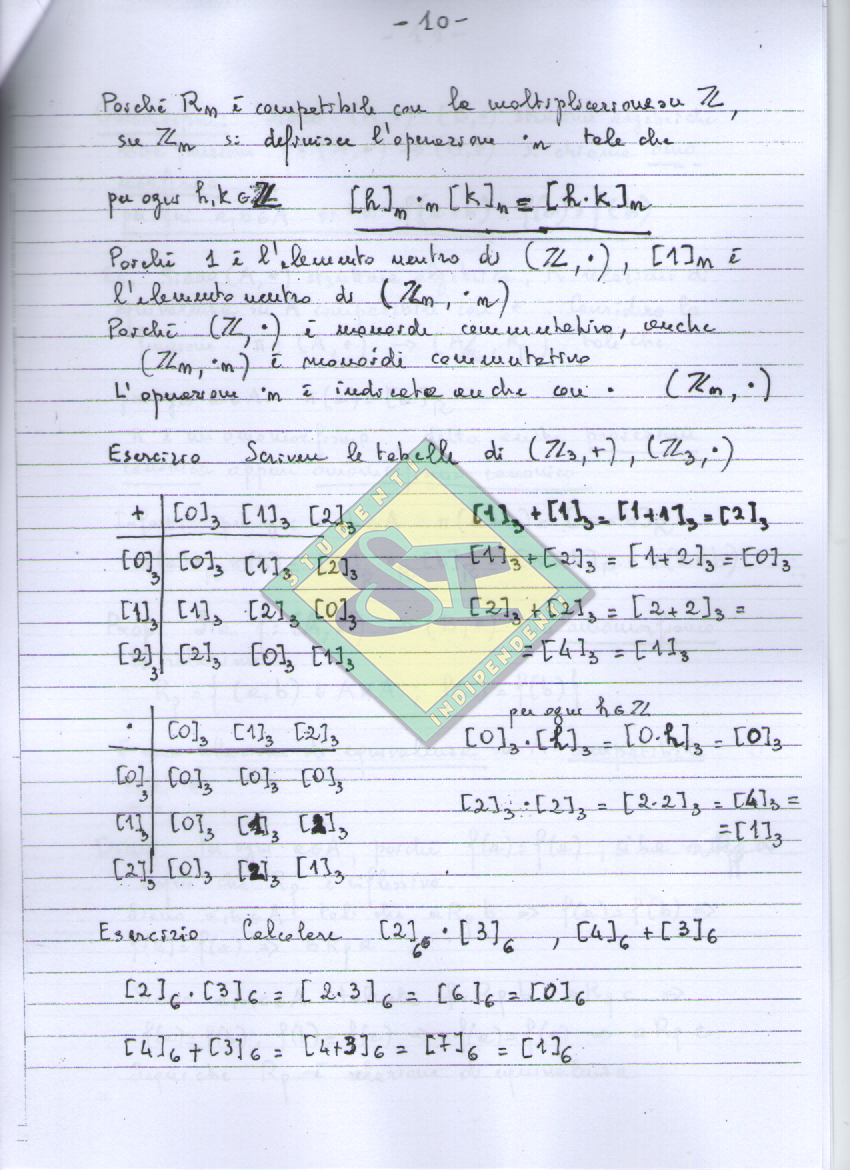 - 10 -
Poiché Rn è compatibile con la moltiplicazione su ℤ,
su ℤn si definisce l'operazione ·n tale che
per ogni h,k ∈ ℤ [h]n ·n [k]n = [h·k]n
Poiché 1 è l'elemento neutro di (ℤ, ·), [1]n è
l'elemento neutro di (ℤn, ·n)
Poiché (ℤ, ·) è monoide commutativo, anche
(ℤn, ·n) è monoide commutativo
L'operazione ·n è indicata anche con · (ℤn, ·)
Esercizio Scrivere le tabelle di (ℤ3,+), (ℤ3,·)
+ [0]3 [1]3 [2]3 [1]3 + [1]3 = [1+1]3 = [2]3
[0]3 [0]3 [1]3 [2]3 [1]3 + [2]3 = [1+2]3 = [0]3
[1]3 [1]3 [2]3 [0]3 [2]3 + [2]3 = [2+2]3 =
[2]3 [2]3 [0]3 [1]3 = [4]3 = [1]3
STUDENTI
INDIPENDENTI
per ogni h∈ℤ
· [0]3 [1]3 [2]3 [0]3·[h]3 = [0·h]3 = [0]3
[0]3 [0]3 [0]3 [0]3
[2]3·[2]3 = [2·2]3 = [4]3 =
[1]3 [0]3 [1]3 [2]3 = [1]3
[2]3 [0]3 [2]3 [1]3
Esercizio Calcolare [2]6 · [3]6 , [4]6 + [3]6
[2]6 · [3]6 = [2·3]6 = [6]6 = [0]6
[4]6 + [3]6 = [4+3]6 = [7]6 = [1]6